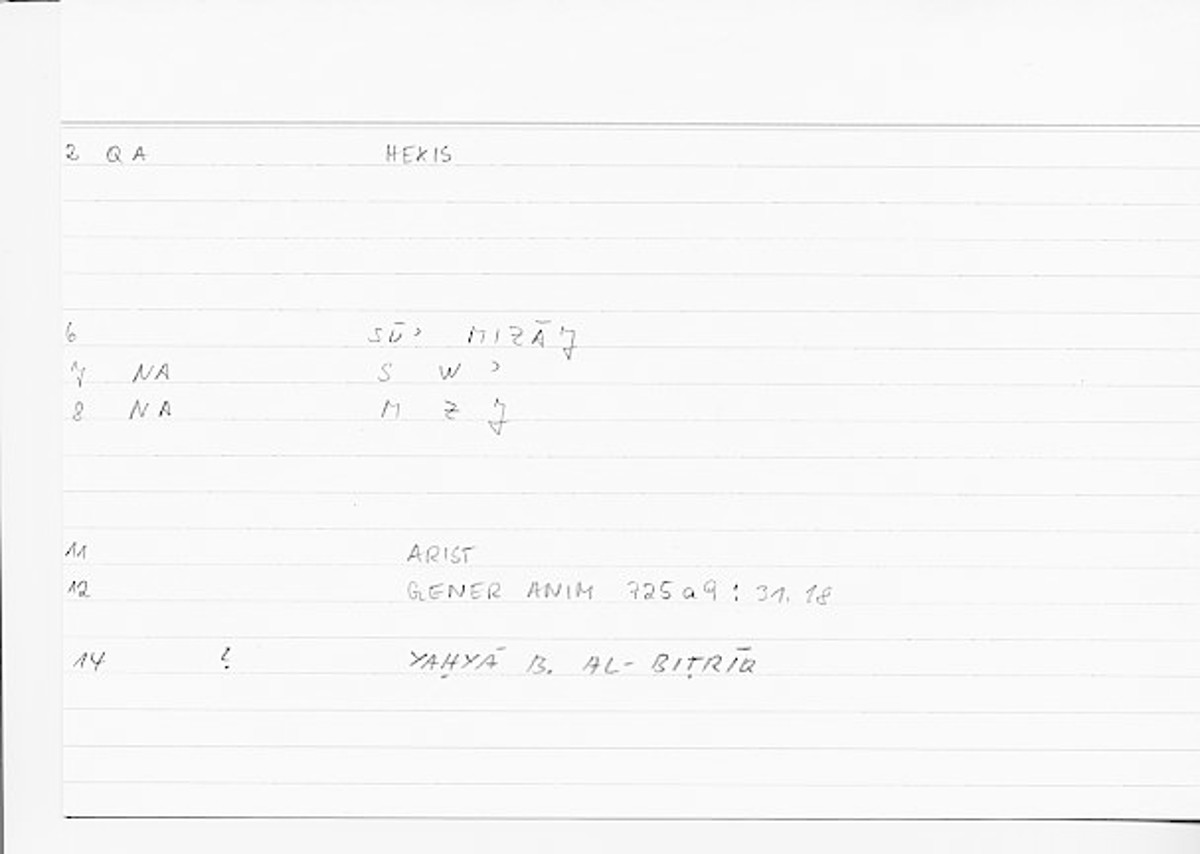 2 QA HEXIS
6 SŪʾ MIZĀJ
7 NA S W ʾ
8 NA M Z J
11 ARIST
12 GENER ANIM 725a9 : 31.18
14 ? YAḤYĀ B. AL-BIṬRĪQ